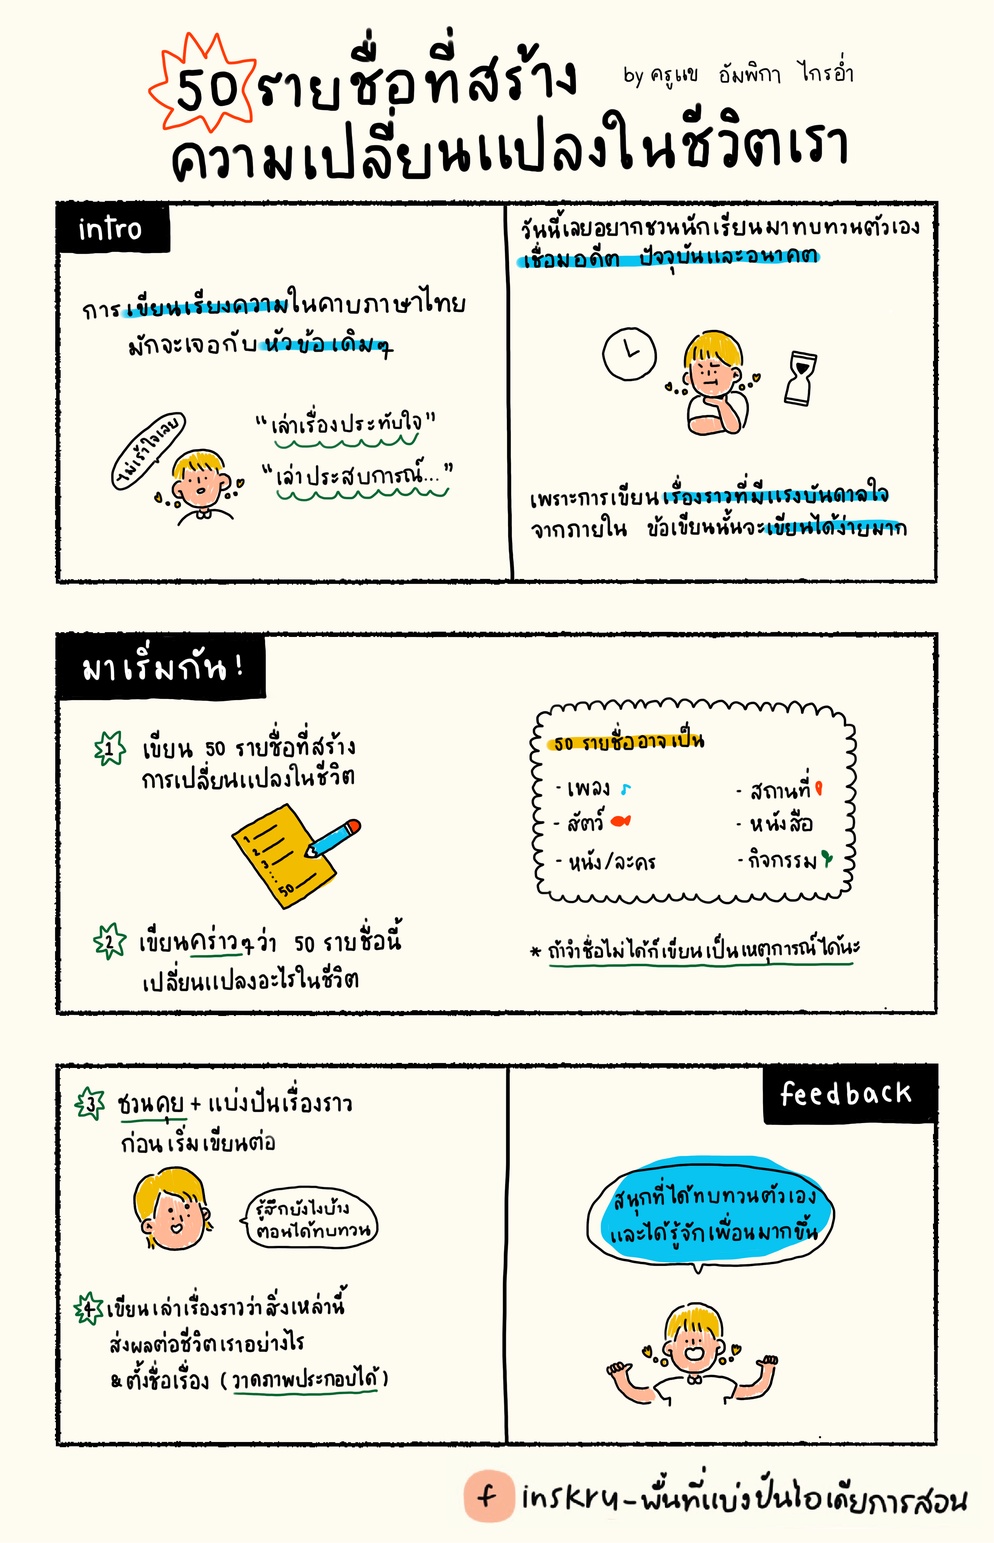 50 รายชื่อที่สร้าง
ความเปลี่ยนแปลงในชีวิตเรา
by ครูแข อัมพิกา ไกรอ่ำ
intro
การเขียนเรียงความในคาบภาษาไทย
มักจะเจอกับหัวข้อเดิมๆ
ไม่เร้าใจเลย
"เล่าเรื่องประทับใจ"
"เล่าประสบการณ์..."
วันนี้เลยอยากชวนนักเรียนมาทบทวนตัวเอง
เชื่อมอดีต ปัจจุบันและอนาคต
เพราะการเขียนเรื่องราวที่มีแรงบันดาลใจ
จากภายใน ข้อเขียนนั้นจะเขียนได้ง่ายมาก
มาเริ่มกัน!
1 เขียน 50 รายชื่อที่สร้าง
การเปลี่ยนแปลงในชีวิต
1
2
3
50
2 เขียนคร่าวๆว่า 50 รายชื่อนี้
เปลี่ยนแปลงอะไรในชีวิต
50 รายชื่ออาจเป็น
- เพลง
- สัตว์
- หนัง/ละคร
- สถานที่
- หนังสือ
- กิจกรรม
* ถ้าจำชื่อไม่ได้ก็เขียนเป็นเหตุการณ์ได้นะ
3 ชวนคุย + แบ่งปันเรื่องราว
ก่อนเริ่มเขียนต่อ
รู้สึกยังไงบ้าง
ตอนได้ทบทวน
4 เขียนเล่าเรื่องราวว่าสิ่งเหล่านี้
ส่งผลต่อชีวิตเราอย่างไร
& ตั้งชื่อเรื่อง (วาดภาพประกอบได้)
feedback
สนุกที่ได้ทบทวนตัวเอง
และได้รู้จักเพื่อนมากขึ้น
f inskru - พื้นที่แบ่งปันไอเดียการสอน